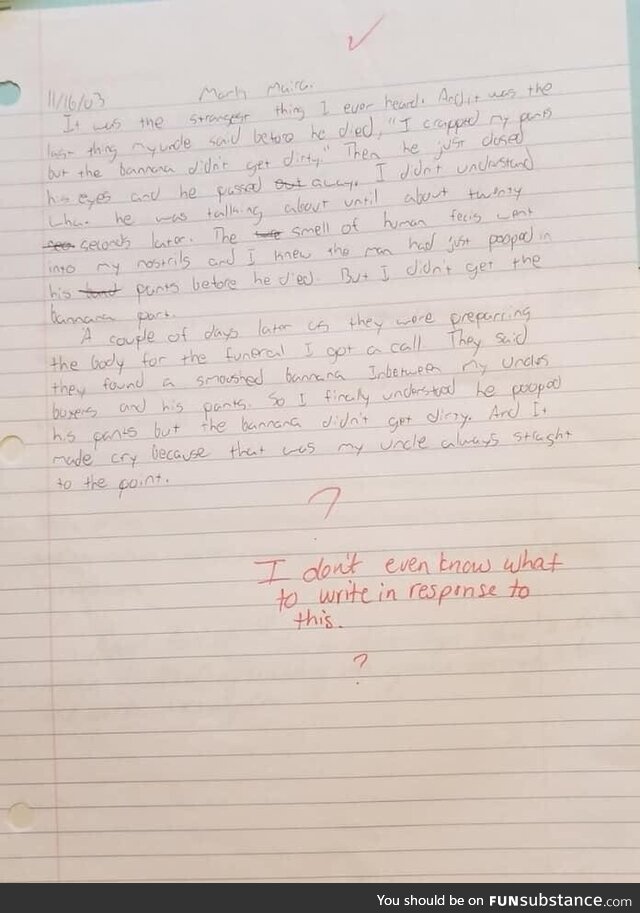 11/16/03
It was the strangest thing I ever heard. And it was the
last thing my uncle said before he died, "I crapped my pants
but the bannana didn't get dirty." Then he just closed
his eyes and he passed out away. I didn't understand
what he was talking about until about twenty
seconds later. The smell of human fecis went
into my nostrils and I knew the man had just pooped in
his pants before he died. But I didn't get the
bannana part.
A couple of days later as they were preparring
the body for the funeral I got a call They said
they found a smooshed bannana Inbetween my uncles
boxers and his pants. So I finaly understood he pooped
his pants but the bannana didn't get dirty. And It
made cry because that was my uncle always straght
to the point.
?
I don't even know what
to write in response to
this.
?
You should be on FUNsubstance.com